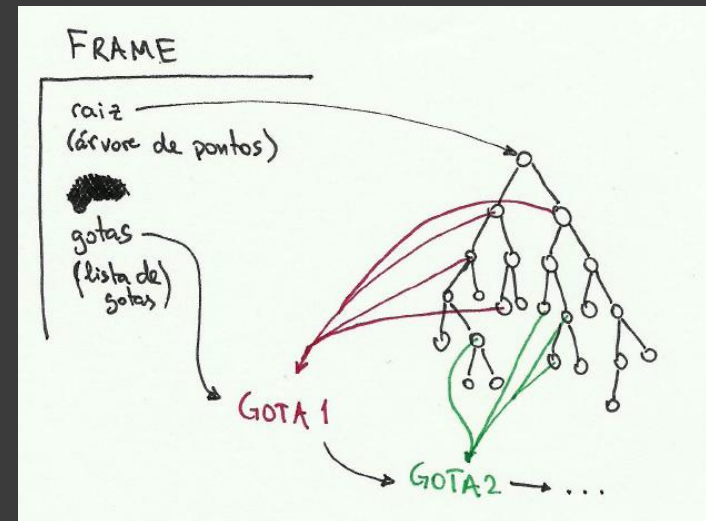 FRAME
raiz
(árvore de pontos)
gotas
(lista de
gotas)
GOTA 1
GOTA2 → ...